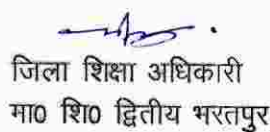 जिला शिक्षा अधिकारी
मा0 शि0 द्वितीय भरतपुर